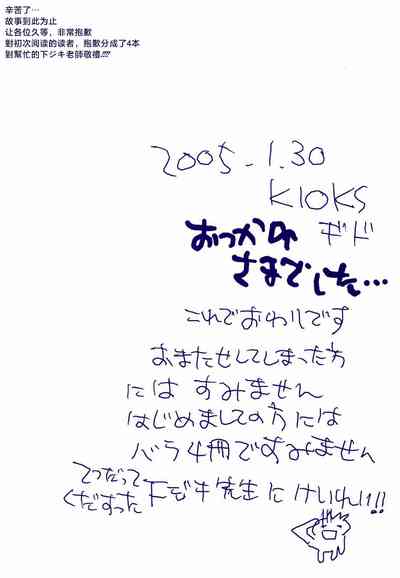 辛苦了…
故事到此为止
让各位久等，非常抱歉
對初次阅读的读者，抱歉分成了4本
對幫忙的下ジキ老師敬禮!!!!
2005-1.30
KIOKS
ギド
おつかれ
さまでした…
これでおわりです
おまたせしてしまった方
にはすみません
はじめましての方には
バラ4冊ですみません
てつだって
くだすった下ジキ先生にけいれい!!